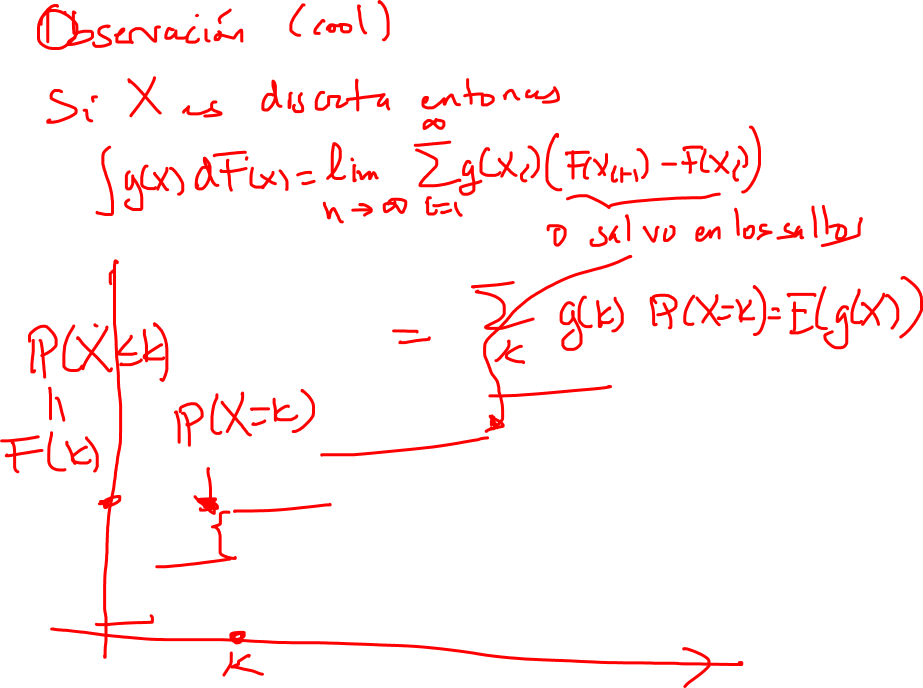 Observación (cool)
Si X es discreta entonces
∫g(x) dF(x) = lim_{n→∞} ∑_{i=1}^{∞} g(x_i) (F(x_{i+1}) - F(x_i))
0 salvo en los saltos
= ∑_k g(k) ℙ(X=k) = E(g(X))
ℙ(X≤k)
=
F(k)
ℙ(X=k)
k